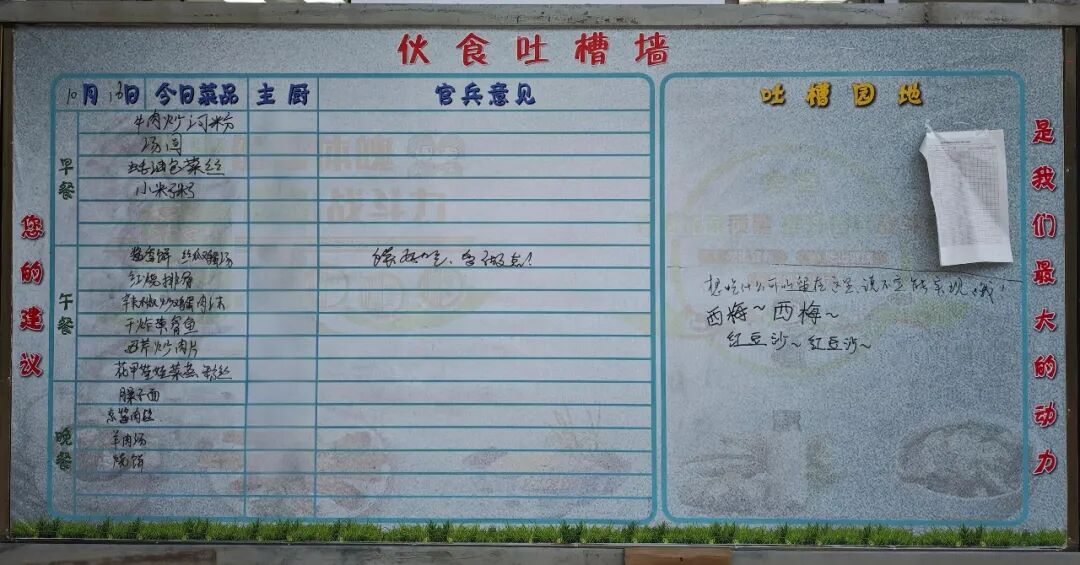 伙食吐槽墙
您的建议
10月13日 今日菜品 主厨 官兵意见
早餐
牛肉炒河粉
汤圆
蚝油包菜丝
小米粥
午餐
酱香饼 丝瓜蛋汤
红烧排骨
辣椒炒肉沫
干炸带鱼
西芹炒肉片
花甲娃娃菜蒸粉丝
晚餐
臊子面
京酱肉丝
羊肉汤
烧饼
吐槽园地
想吃什么可以留在这里,说不定能实现哦!
西梅~ 西梅~
红豆沙~ 红豆沙~
是我们最大的动力